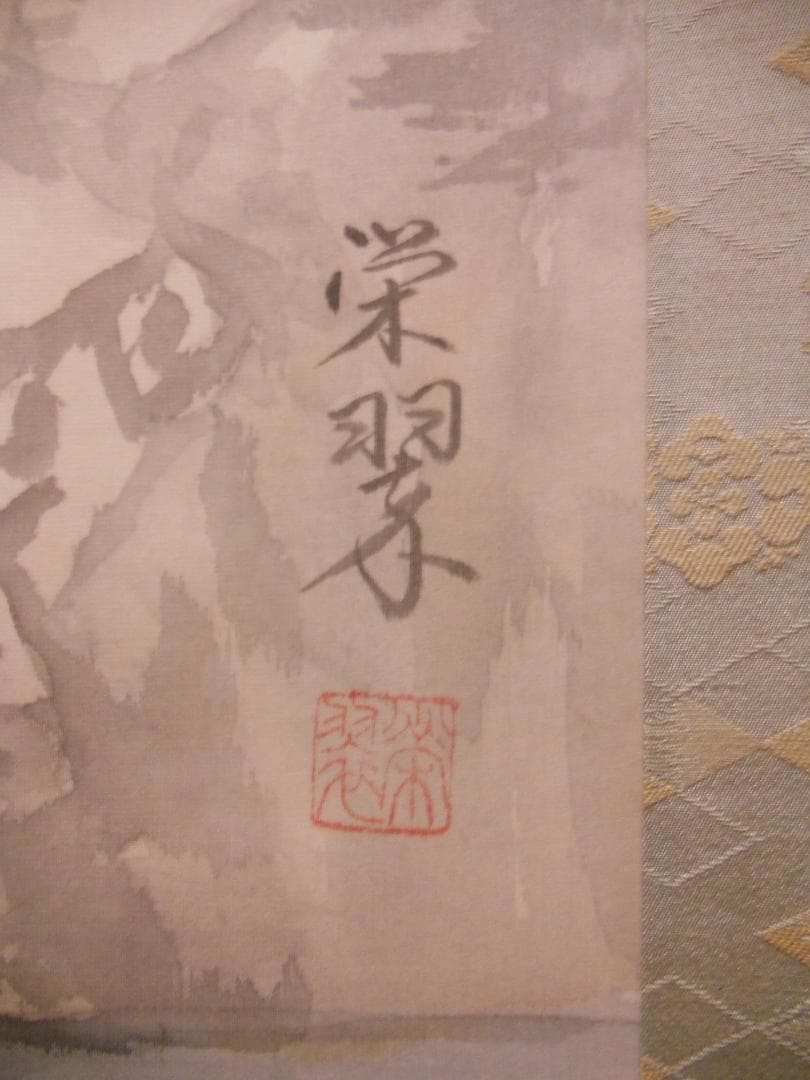 栄翠
栄翠